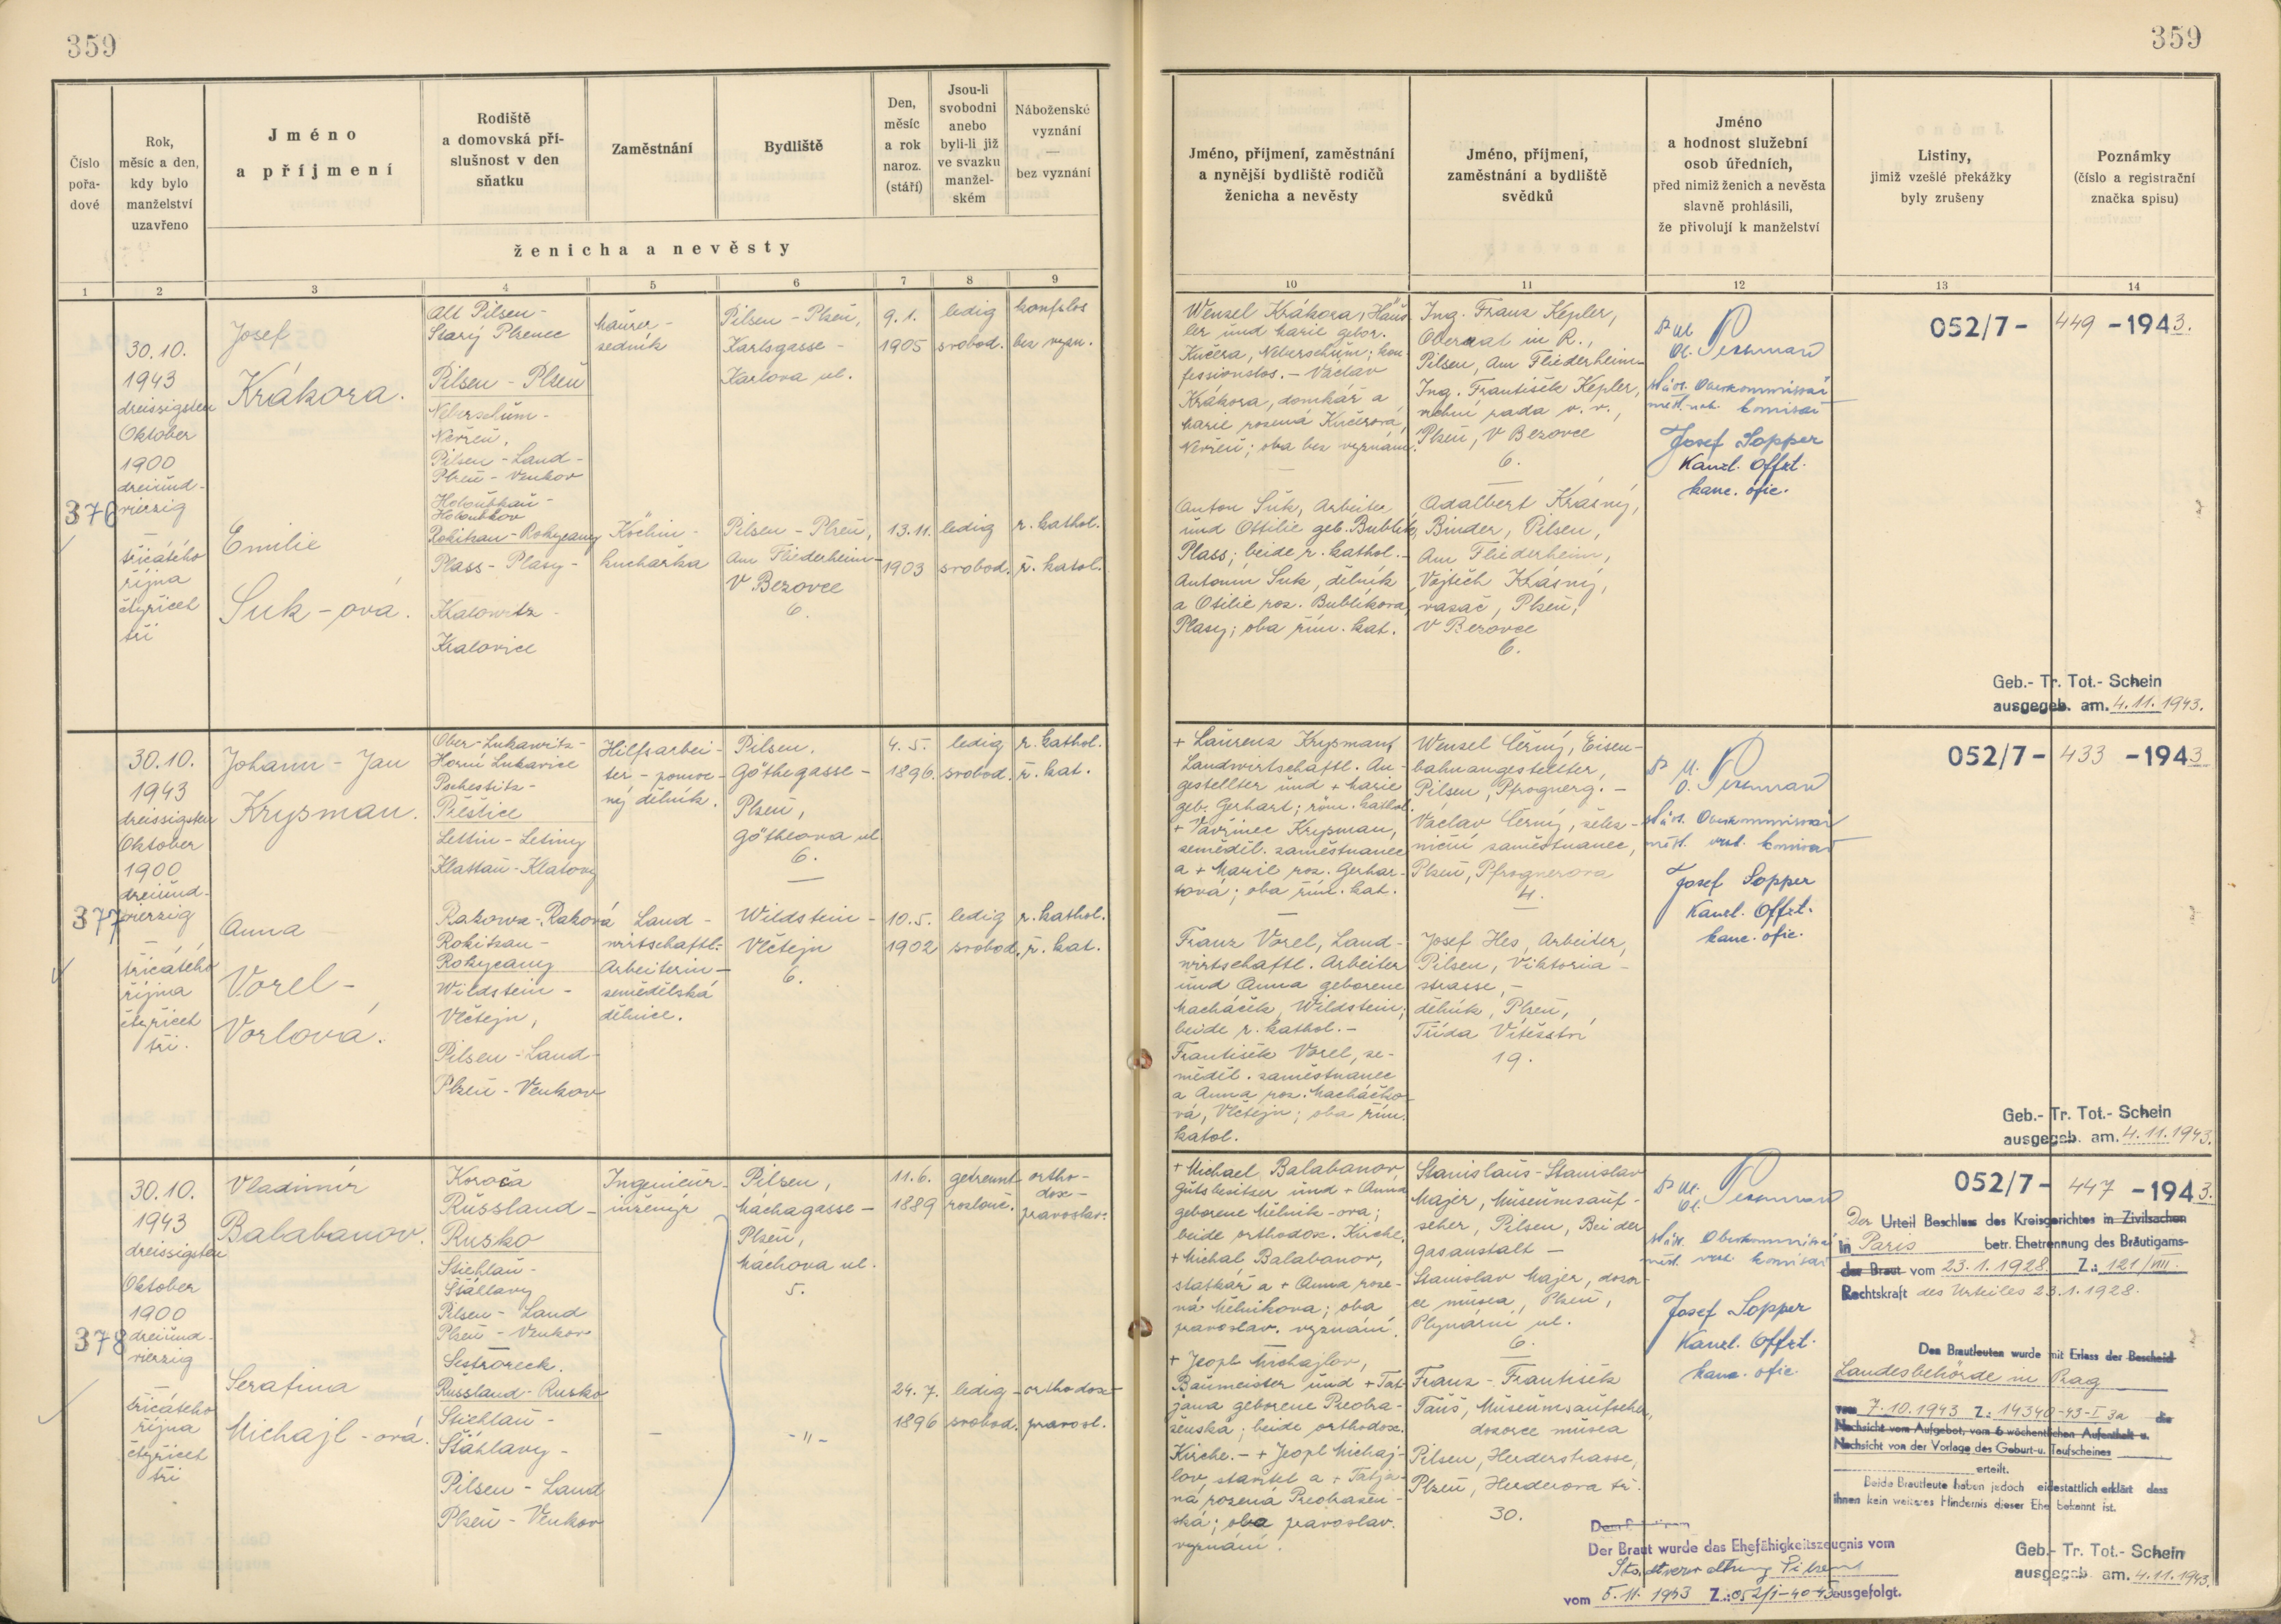 359
359
Číslo pořa-dové
Rok, měsíc a den, kdy bylo manželství uzavřeno
Jméno a příjmení
Rodiště a domovská pří-slušnost v den sňatku
Zaměstnání
Bydliště
Den, měsíc a rok naroz. (stáří)
Jsou-li svobodni anebo byli-li již ve svazku manžel-ském
Náboženské vyznání — bez vyznání
ženicha a nevěsty
Jméno, příjmení, zaměstnání a nynější bydliště rodičů ženicha a nevěsty
Jméno, příjmení, zaměstnání a bydliště svědků
Jméno a hodnost služební osob úředních, před nimiž ženich a nevěsta slavně prohlásili, že přivolují k manželství
Listiny, jimiž vzešlé překážky byly zrušeny
Poznámky (číslo a registrační značka spisu)
1 2 3 4 5 6 7 8 9 10 11 12 13 14
376
30.10.
1943
dreissigsten
Oktober
1900
dreiund-
vierzig
třicátého
října
čtyřicet
tři
Josef
Krákora.
Alt Pilsen -
Starý Plzenec
Pilsen - Plzeň
Neberschům -
Nevřeň,
Pilsen - Land -
Plzeň - Venkov
Maurer -
zedník
Pilsen - Plzeň,
Karlsgasse -
Karlova ul.
9.1.
1905
ledig
svobod.
konfslos
bez vyzn.
Emilie
Suk - ová.
Holoubkau -
Holoubkov
Rokitzan - Rokycany
Plass - Plasy -
Kralowitz -
Kralovice
Köchin -
kuchařka
Pilsen - Plzeň,
Am Fliederheim -
V Bezovce
6.
13.11.
1903
ledig
svobod.
r. kathol.
ř. katol.
Wenzel Krákora, Häus-
ler und Marie gebor.
Kučera, Neberschům; kon-
fessionslos. - Václav
Krákora, domkář a
Marie rozená Kučerová,
Nevřeň; oba bez vyznání.
Anton Suk, Arbeiter
und Ottilie geb. Bublik,
Plass; beide r. kathol. -
Antonín Suk, dělník
a Otilie roz. Bublíkova,
Plasy; oba řím. kat.
Ing. Franz Kepler,
Oberrat in R.,
Pilsen, Am Fliederheim -
Ing. František Kepler,
vrchní rada v. v.,
Plzeň, V Bezovce
6.
Adalbert Krásný,
Binder, Pilsen,
Am Fliederheim,
Vojtěch Krásný,
vazač, Plzeň,
V Bezovce
6.
Josef Sopper
Kanzl. Offzt.
kanc. ofic.
052/7 - 449 - 1943.
Geb.- Tr. Tot.- Schein
ausgegeb. am. 4.11.1943.
377
30.10.
1943
dreissigsten
Oktober
1900
dreiund-
vierzig
třicátého
října
čtyřicet
tři.
Johann - Jan
Krysman.
Ober-Lukawitz -
Horní Lukavice
Pschestitz -
Přeštice
Lettin - Letiny
Klattau - Klatovy
Hilfsarbei-
ter - pomoc-
ný dělník.
Pilsen,
Göthegasse -
Plzeň,
Götheova ul
6.
4.5.
1896.
ledig
svobod.
r. kathol.
ř. kat.
Anna
Vorel -
Vorlová.
Rakowa - Raková
Rokitzan -
Rokycany
Wildstein -
Vlčtejn,
Pilsen - Land -
Plzeň - Venkov
Land -
wirtschaftl.
Arbeiterin -
zemědělská
dělnice.
Wildstein -
Vlčtejn
6.
10.5.
1902
ledig
svobod.
r. kathol.
ř. kat.
+ Laurenz Krysman,
Landwirtschaftl. An-
gestellter und + Marie
geb. Gerhart; röm. kathol.
+ Vavřinec Krysman,
zeměděl. zaměstnanec
a + Marie roz. Gerhar-
tová; oba řím. kat.
Franz Vorel, Land-
wirtschaftl. Arbeiter
und Anna geborene
Macháček, Wildstein;
beide r. kathol. -
František Vorel, ze-
měděl. zaměstnanec
a Anna roz. Macháčko-
vá, Vlčtejn; oba řím.
katol.
Wenzel Černý, Eisen-
bahnangestellter,
Pilsen, Pfrognerg. -
Václav Černý, želez-
niční zaměstnanec,
Plzeň, Pfrognerova
4.
Josef Hes, Arbeiter,
Pilsen, Viktoria -
strasse, -
dělník, Plzeň,
Třída Vítězství
19.
Josef Sopper
Kanzl. Offzt.
kanc. ofic.
052/7 - 433 - 1943
Geb.- Tr. Tot.- Schein
ausgegeb. am. 4.11.1943.
378
30.10.
1943
dreissigsten
Oktober
1900
dreiund-
vierzig
třicátého
října
čtyřicet
tři
Vladimír
Balabanov.
Koroča
Russland -
Rusko
Stiehlau -
Šťáhlavy
Pilsen - Land
Plzeň - Venkov
Ingenieur -
inženýr
Pilsen,
Máchagasse -
Plzeň,
Máchova ul.
5.
11.6.
1889
getrennt
rozlouč.
ortho-
dox -
pravoslav.
Serafina
Michajl - ová.
Sestroreck.
Russland - Rusko
Stiehlau -
Šťáhlavy -
Pilsen - Land
Plzeň - Venkov
-
- " -
24.7.
1896
ledig -
svobod.
orthodox -
pravosl.
+ Michael Balabanov
Gutsbesitzer und + Anna
geborene Mělnik-ova;
beide orthodox. Kirche.
+ Michal Balabanov,
statkář a + Anna roze-
ná Melnikova; oba
pravoslav. vyznání.
+ Jeopl Michajlov,
Baumeister und + Tat-
jana geborene Preobra-
ženská; beide orthodox.
Kirche. - + Jeopl Michaj-
lov, stavitel a + Tatja-
na rozená Preobražen-
ská; oba pravoslav.
vyznání.
Stanislaus - Stanislav
Majer, Museumsauf-
seher, Pilsen, Bei der
Gasanstalt -
Stanislav Majer, dozor-
ce musea, Plzeň,
Plynární ul.
6.
Franz - František
Tauš, Museumsaufseher,
dozorce musea
Pilsen, Herderstrasse,
Plzeň, Herderova tř.
30.
Josef Sopper
Kanzl. Offzt.
kanc. ofic.
052/7 - 447 - 1943.
Der Urteil Beschluss des Kreisgerichtes in Zivilsachen
in Paris betr. Ehetrennung des Bräutigams-
der Braut vom 23.1.1928. Z.: 121/VIII.
Rechtskraft des Urteiles 23.1.1928.
Den Brautleuten wurde mit Erlass der Bescheid
Landesbehörde in Prag
vom 7.10.1943 Z.: 14340-43-I 3a die
Nachsicht vom Aufgebot, vom 6 wöchentlichen Aufenthalt u.
Nachsicht von der Vorlage des Geburt-u. Taufscheines
erteilt.
Beide Brautleute haben jedoch eidestattlich erklärt dass
ihnen kein weiteres Hindernis dieser Ehe bekannt ist.
Der Braut wurde das Ehefähigkeitszeugnis vom
Stadtverwaltung Pilsen
vom 5.11.1943 Z.: 052/1-40-43 ausgefolgt.
Geb.- Tr. Tot.- Schein
ausgegeb. am. 4.11.1943.